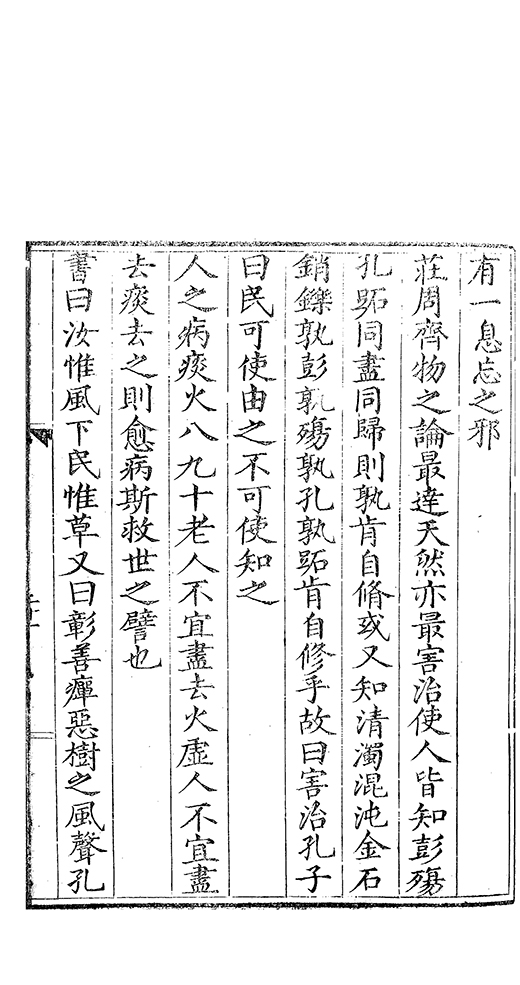 有一息忘之邪
莊周齊物之論最達天然亦最害治使人皆知彭殤
孔跖同盡同歸則孰肯自脩或又知清濁混沌金石
銷鑠孰彭孰殤孰孔孰跖肯自修乎故曰害治孔子
曰民可使由之不可使知之
人之病痰火八九十老人不宜盡去火虛人不宜盡
去痰去之則愈病斯救世之譬也
書曰汝惟風下民惟草又曰彰善癉惡樹之風聲孔